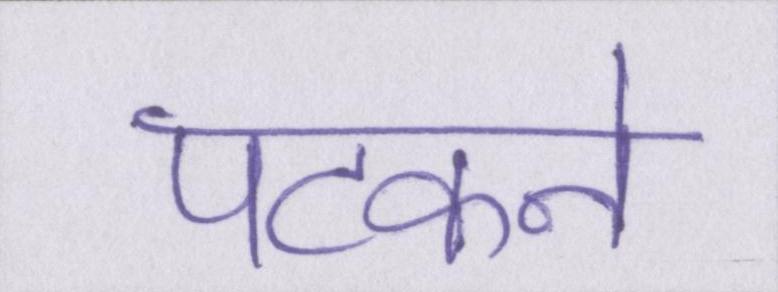 पटकने